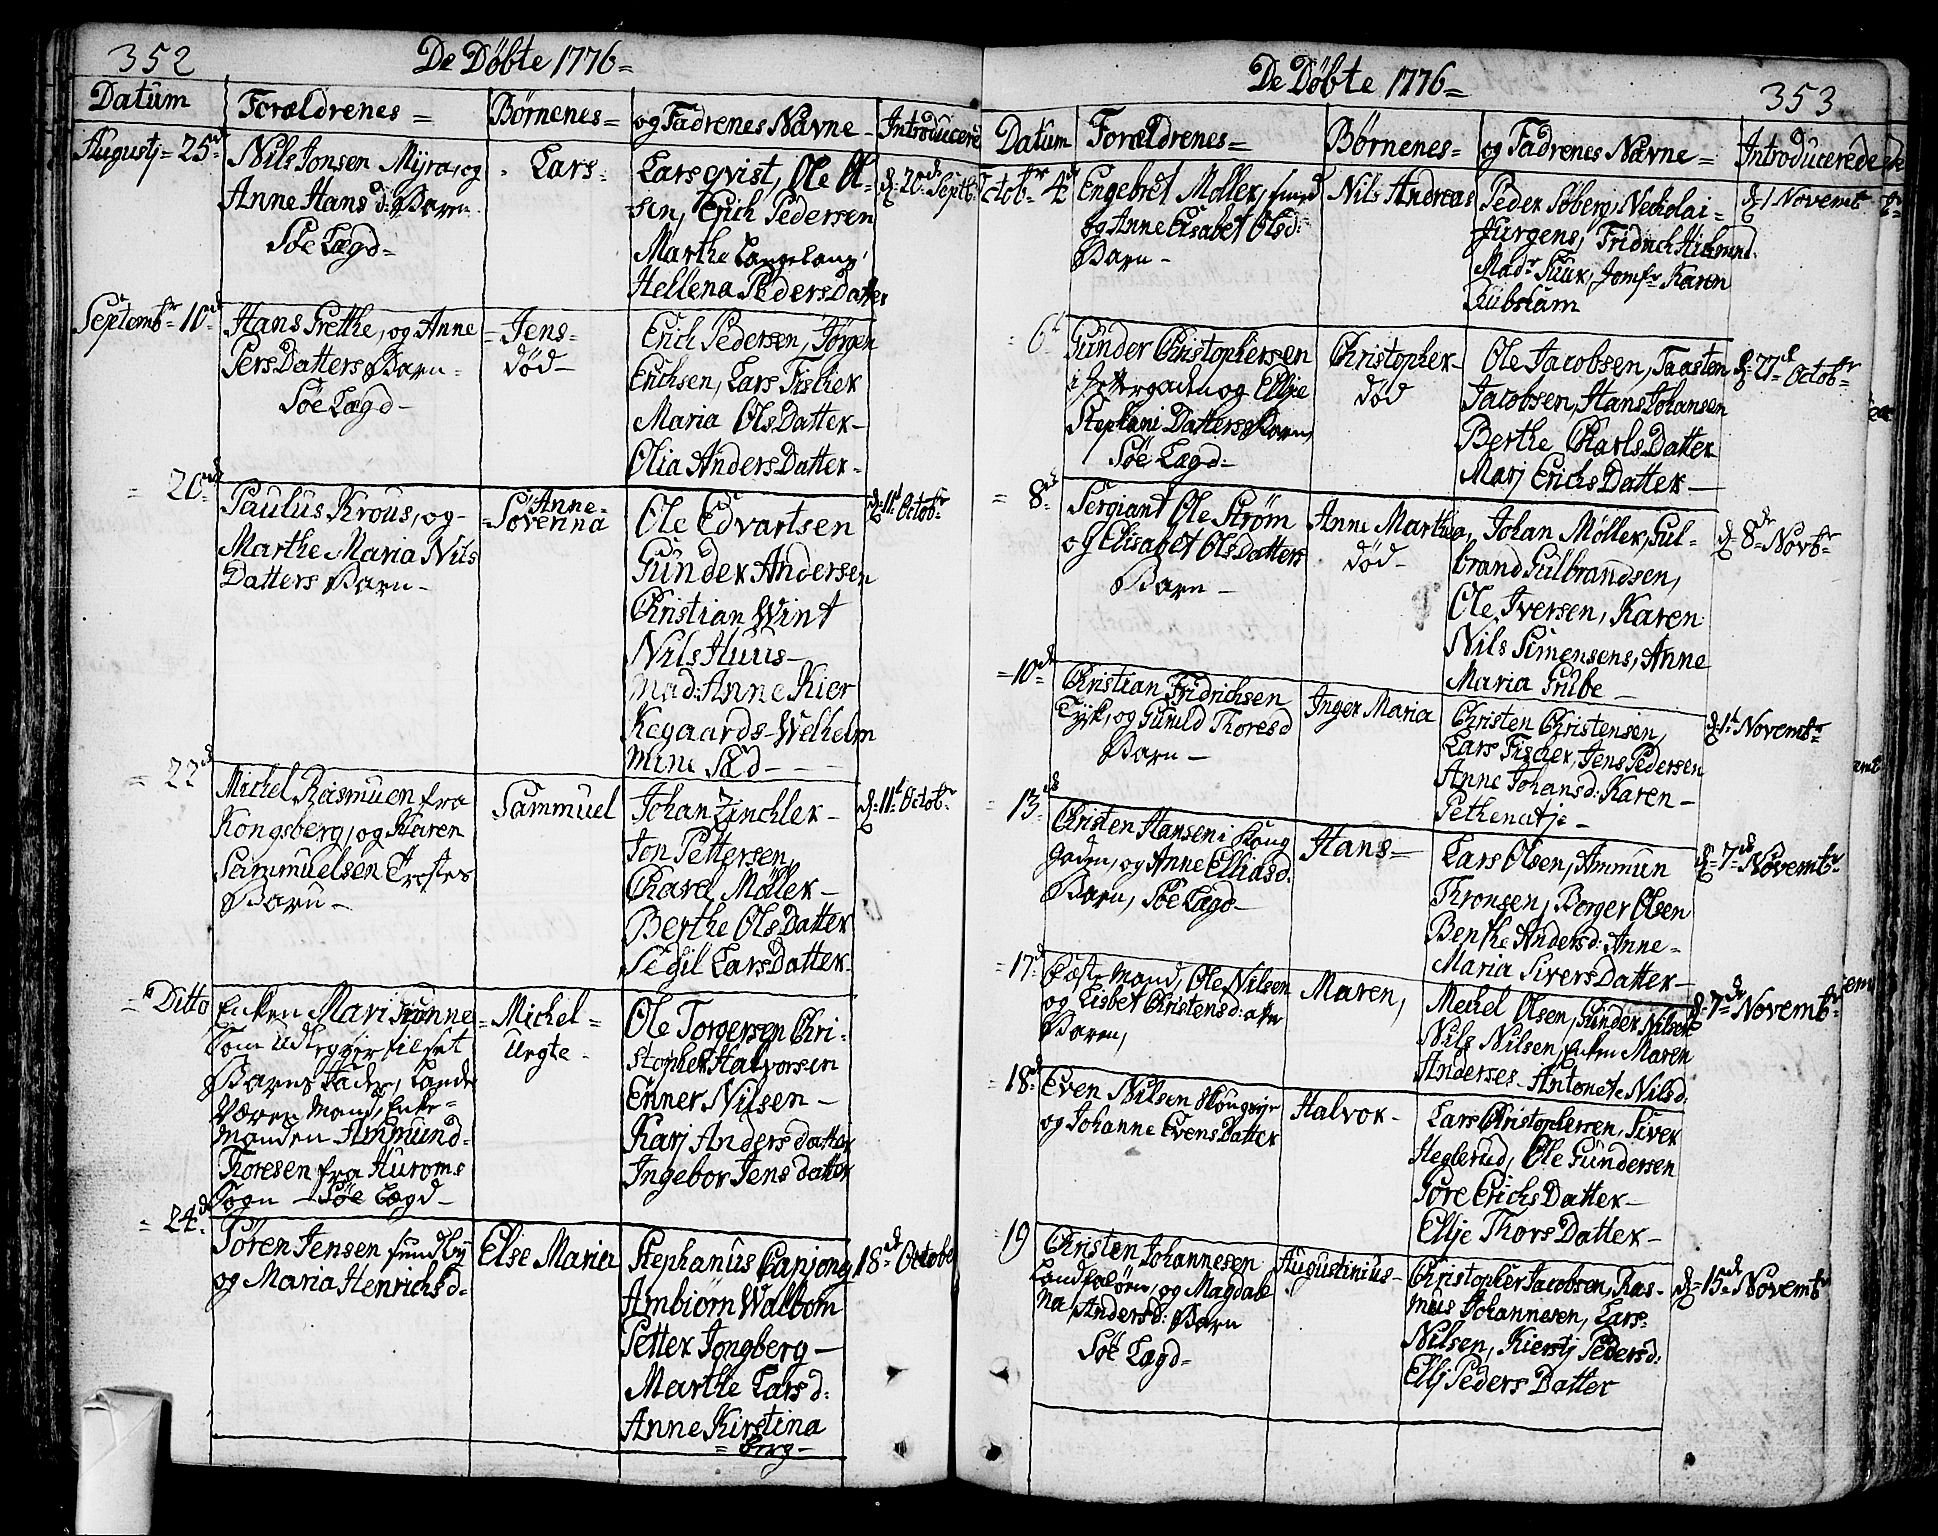 352
De Døbte 1776=
Datum
Forældrenes=
Børnenes=
og Fadrenes Navne
Introducere
Augustj=25de
Nils Jonsen Mijra, og
Anne Hans d: Barn
Søe Lægd=
Lars=
Lars qvist, Ole Ol=
sen, Erich Pedersen
Marthe Langelang
Hellena PedersDatter
d: 20de Septb
Septembr=10de
Hans Grethe, og Anne
PersDatters Barn=
Søe Lægd-
Jens=
død-
Erich Pedersen, Jørgen
Erichsen, Lars Fischer
Maria OlsDatter-
Olia AndersDatter-
=20de
Paulus Krous, og-
Marthe Maria Nils
Datters Barn-
Anne=
=Soverina
Ole Edvartsen
Gunder Andersen
Christian Wint
Nils Huus-
Mad: Anne Kier
Kegaards-Welhelm
Mine Sæd-
d:11t Octobr
=22de
Michel Rasmuen fra
Kongsberg, og Karen
Sammuelsen
Barn-
Sammuel
Johan Zinchler-
Jon Pettersen,
Charel Møller-
Berthe OlsDatter
Segil LarsDatter
d:11t Octobr
=Ditto
Enken Mari
Som Udlegger til sit
Barns Fader, Lands
Væren Mand, Enke=
Manden Ammund=
Thoresen fra Huroms
Sogn - Søe Lægd-
=Michel=
Uegte-
Ole Torgersen Chri-
stopher Halvorsen
Enner Nilsen-
Karj Anders datter
Ingebor Jens datter
=24de
Sören Jensen Sundby
og Maria Henrichsd=
Else Maria
Stephanus Canjong
Ambiörn Walbom
Petter Jongberg-
Marthe Lars d:
Anne Kirstina
=berg-
18de Octobe
De Døbte 1776=
353
Datum
Forældrenes=
Børnenes=
og Fadrenes Navne=
Introducerede
Octobr 4de
Engebret Møller, smed
og Anne Elisabet Olsd:
Barn-
Nils Andreas
Peder Søberg, Neckolai-
Jurgens, Fridrich
Madr Suur, Jomfr Karen
Kubsham
d:1 Novembr
=6t
Gunder Christophersen
i og Ellje
Stephani Datters Barn,
Søe Lægd-
Christopher-
død
Ole Jacobsen, Taasten
Jacobsen, Hans Johansen
Berthe CharlsDatter
Marj ErichsDatter-
d:27de Octobr=
=8de
Sergiant Ole Strøm
og Elisabet OlsDatters
Barn-
Anne Marthea,
død-
Johan Møller, Gul-
brand Gulbrandsen,
Ole Iversen, Karen
Nils Simensens, Anne
Maria Grube-
d-8de Novbr
=10de
Christian Fridrichsen
Tyk, og Gunild Thoresd
Barn-
Inger Maria
Christen Christensen,
Lars Fischer, Jens Pedersen
Anne Johansd: Karen-
Pethenatje-
d:1t Novembr
13de
Christen Hansen i Kong
gaden, og Anne Elliasd:
Barn, Søe Lægd-
Hans=
Lars Olsen, Ammun
Thronsen, Borger Olsen
Benthe Andersd: Anne-
Maria Sivers Datter-
d=7de Novembr
=17de
Mand, Ole Nilsen
og Lisbet Christensd:
Barn,
Maren,
Mechel Olsen, Gunder Nilsen
Nils Nilsen, Enken Maren
Anderses-Antonete Nilsd:
d:7de Novembr
=18de
Even Nilsen
og Johanne EvensDatter
Halvor-
Lars Christophersen, Siver
Heglerud, Ole Gundersen
Gore ErichsDatter-
Ellje ThorsDatter-
19
Christen Johannesen
og Magdale
na Andersd: Barn
Søe Lægd-
Augustinius-
Christopher Jacobsen, Ras-
mus Johannesen, Lars-
Nilsen, Kierstj Pedersd:
Ellj Peders Datter
d=15de Novembr